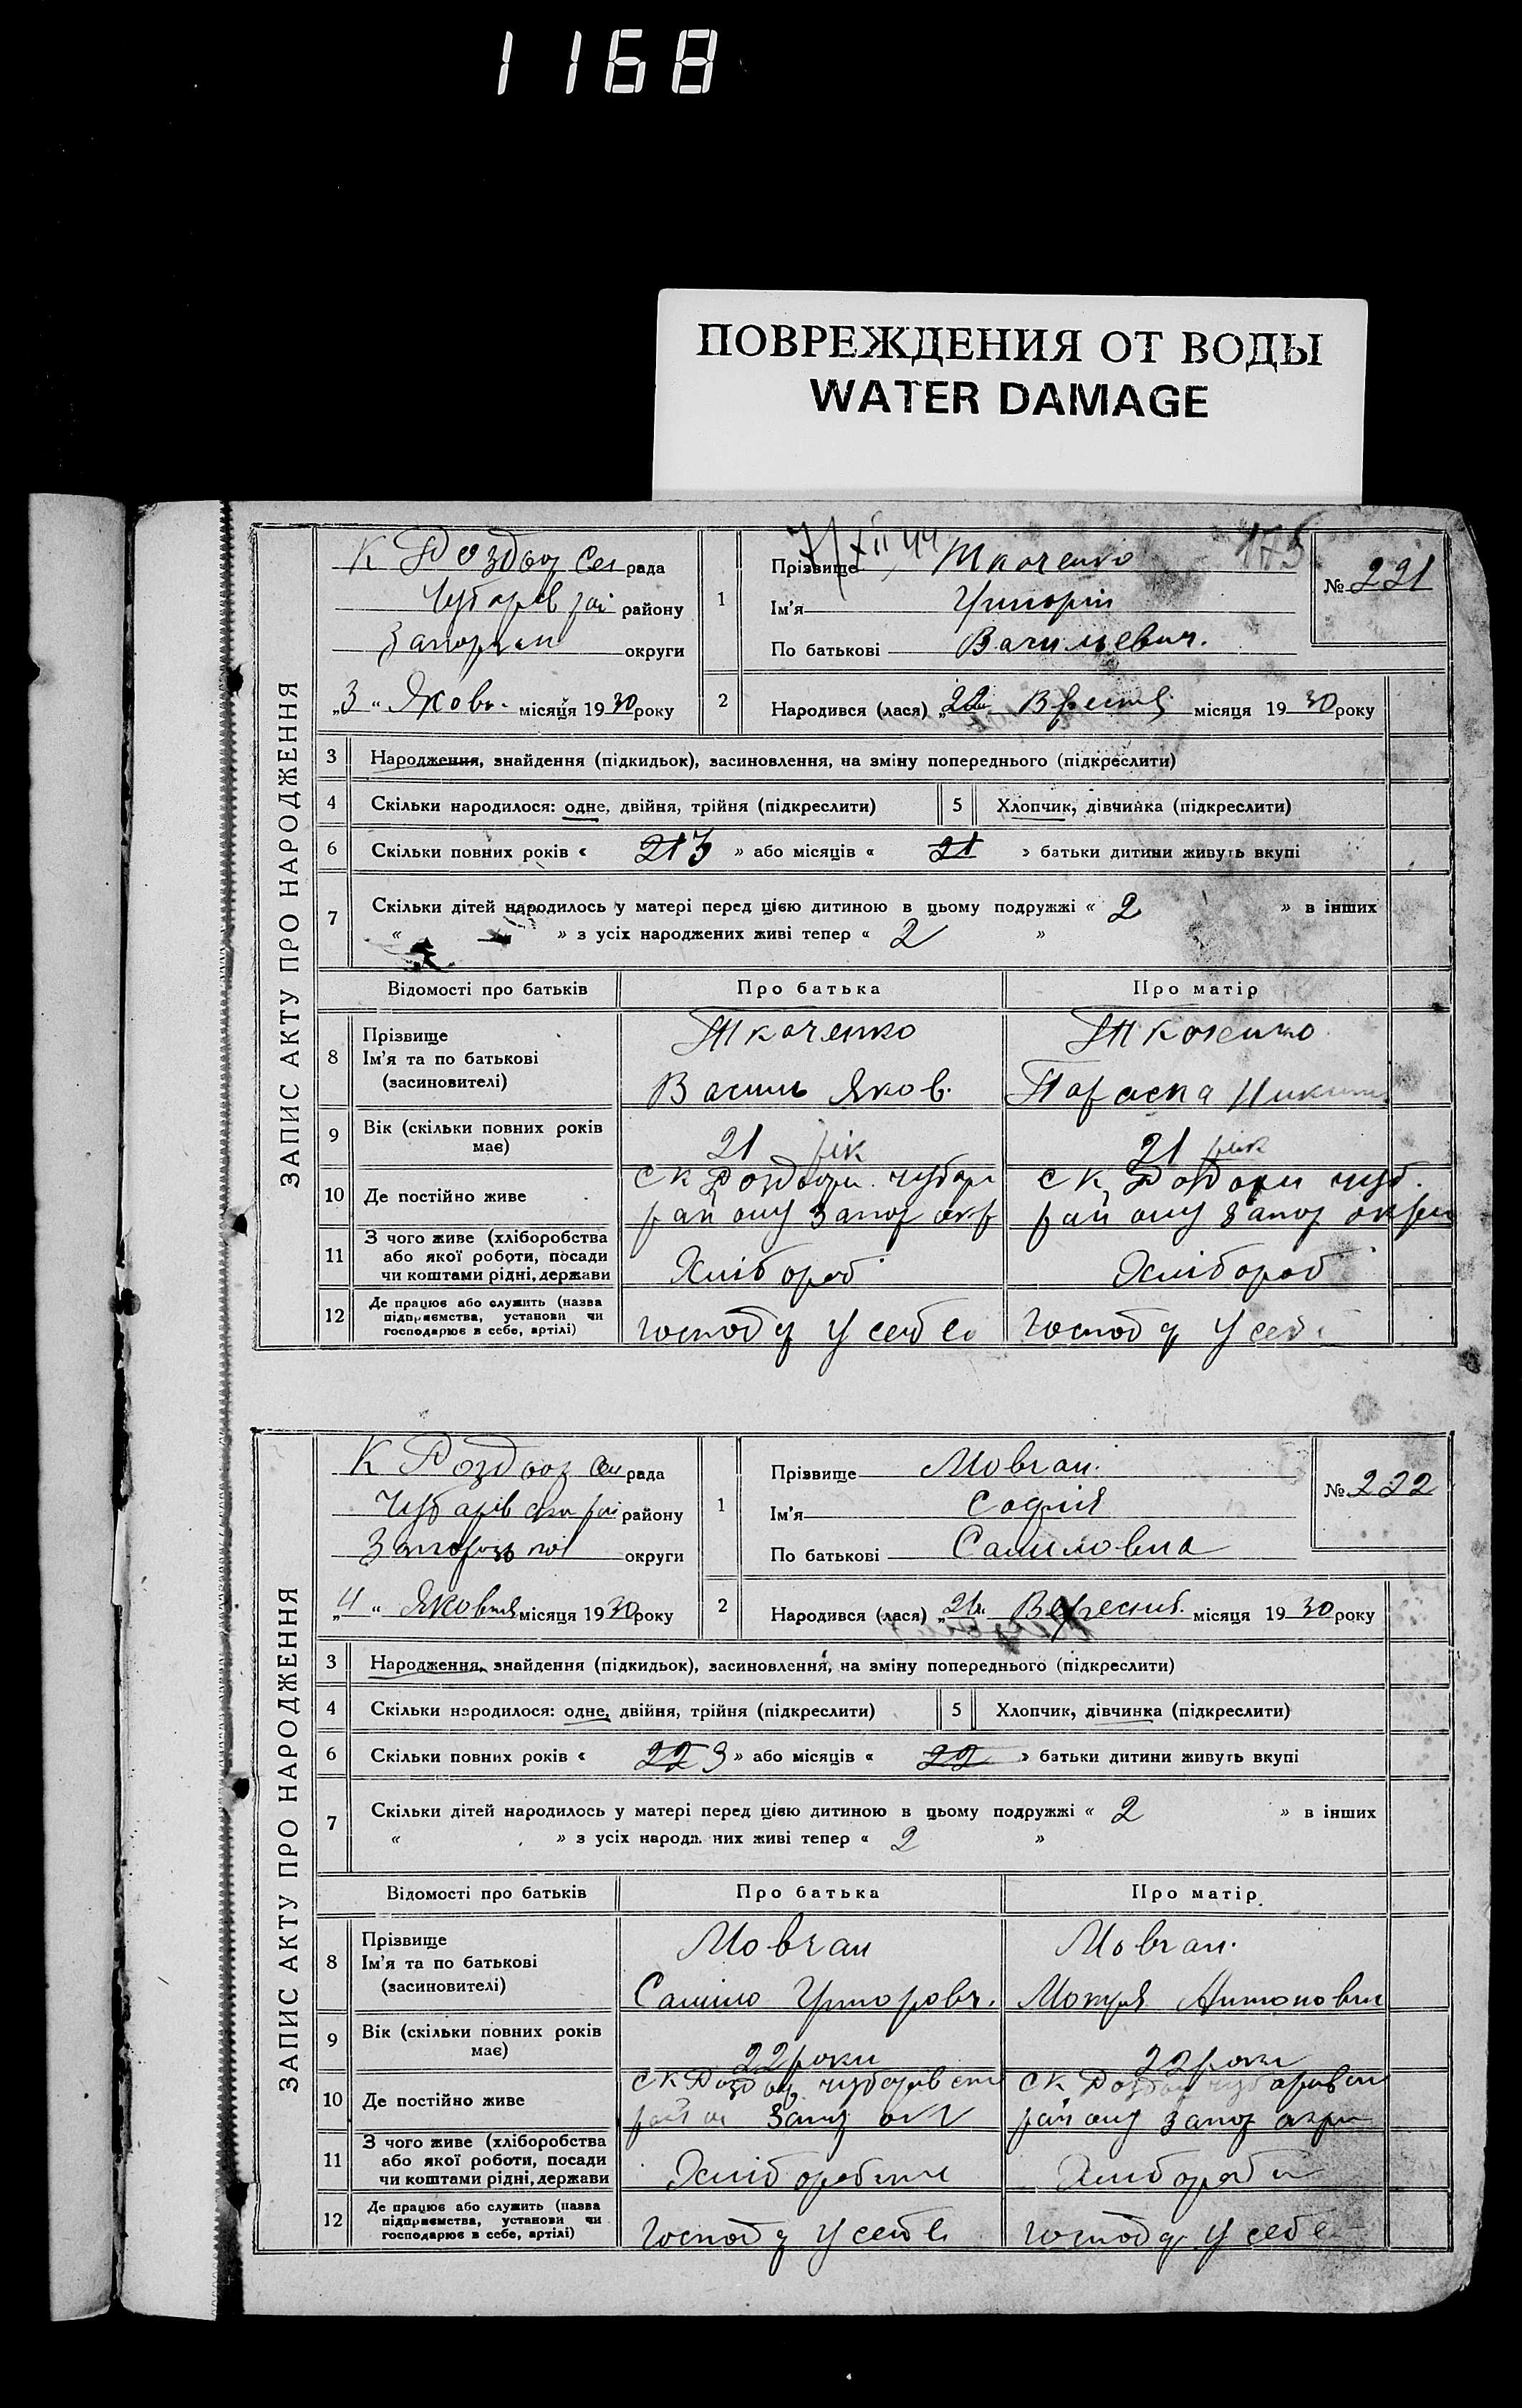 1168
ПОВРЕЖДЕНИЯ ОТ ВОДЫ
WATER DAMAGE
ЗАПИС АКТУ ПРО НАРОДЖЕННЯ
К Роздор Сел рада
Чубарів рай району
округи
„3“ Жовт. місяця 1930 року
1
Прізвище Ткаченко
Ім’я Григорій
По батькові Васильевич.
№ 221
2
Народився (лася) „ Вресня місяця 1930 року
3 Народження, знайдення (підкидьок), засиновлення, на зміну попереднього (підкреслити)
4 Скільки народилося: одне, двійня, трійня (підкреслити)
5 Хлопчик, дівчинка (підкреслити)
6 Скільки повних років « 21 3 » або місяців « 21 » батьки дитини живуть вкупі
7 Скільки дітей народилось у матері перед цією дитиною в цьому подружжі « 2 » в інших
« » з усіх народжених живі тепер « 2 »
Відомості про батьків
Про батька
Про матір
8 Прізвище
Ім’я та по батькові
(засиновителі)
Ткаченко
Василь Яков.
Ткаченко
Параска
9 Вік (скільки повних років має)
21 рік
21 рік
10 Де постійно живе
с К Роздори. чубар
району Запор окр
с К Роздори чуб.
району Запор
11 З чого живе (хліборобства
або якої роботи, посади
чи коштами рідні, держави
Хлібороб
Хлібороб
12 Де працює або служить (назва
підприємства, установи чи
господарює в себе, артілі)
господ у себе
господ у себ
ЗАПИС АКТУ ПРО НАРОДЖЕННЯ
К Роздор Сел рада
району
округи
„4“ Жовтня місяця 1930 року
1
Прізвище Мовчан.
Ім’я Софія
По батькові Самиловна
№ 222
2
Народився (лася) „21“ місяця 1930 року
3 Народження, знайдення (підкидьок), засиновлення, на зміну попереднього (підкреслити)
4 Скільки народилося: одне, двійня, трійня (підкреслити)
5 Хлопчик, дівчинка (підкреслити)
6 Скільки повних років « 22 3 » або місяців « 22 » батьки дитини живуть вкупі
7 Скільки дітей народилось у матері перед цією дитиною в цьому подружжі « 2 » в інших
« » з усіх народж них живі тепер « 2 »
Відомості про батьків
Про батька
Про матір
8 Прізвище
Ім’я та по батькові
(засиновителі)
Мовчан
Саміло Григоров.
Мовчан.
Мокрія Антоновн
9 Вік (скільки повних років має)
22 роки
22 роки
10 Де постійно живе
с К Роздор. чубарівськ
Запор окр
с К Роздор чубарівськ
району Запор
11 З чого живе (хліборобства
або якої роботи, посади
чи коштами рідні, держави
12 Де працює або служить (назва
підприємства, установи чи
господарює в себе, артілі)
господ у себе
господ у себе